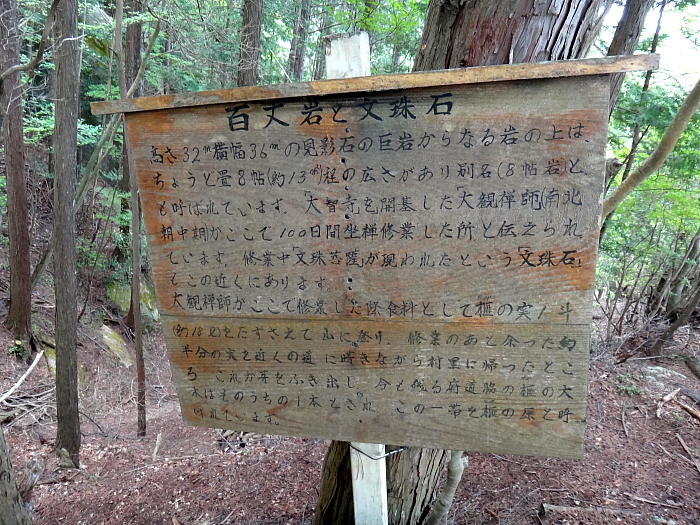 百丈岩と文珠石
高さ32m横幅36mの見影石の巨岩からなる岩の上は、
ちょうど畳8帖(約13㎡)程の広さがあり別名(8帖岩)と
も呼ばれています。「大智寺を開基した「大観禅師(南北
朝中期がここで100日間坐禅修業した所と伝えられ
ています。修業中「文珠菩薩」が現われたという「文珠石」
もこの近くにあります。
大観禅師がここで修業した際食料として榧の実1斗
(約18ℓ)をたずさえて山に登り、修業のあと余った約
半分の実を近くの道に蒔きながら村里に帰ったとこ
ろ これが芽をふき出し 今も残る府道脇の榧の大
木はそのうちの1本とされ この一帯を榧の尾と呼
ばれています。